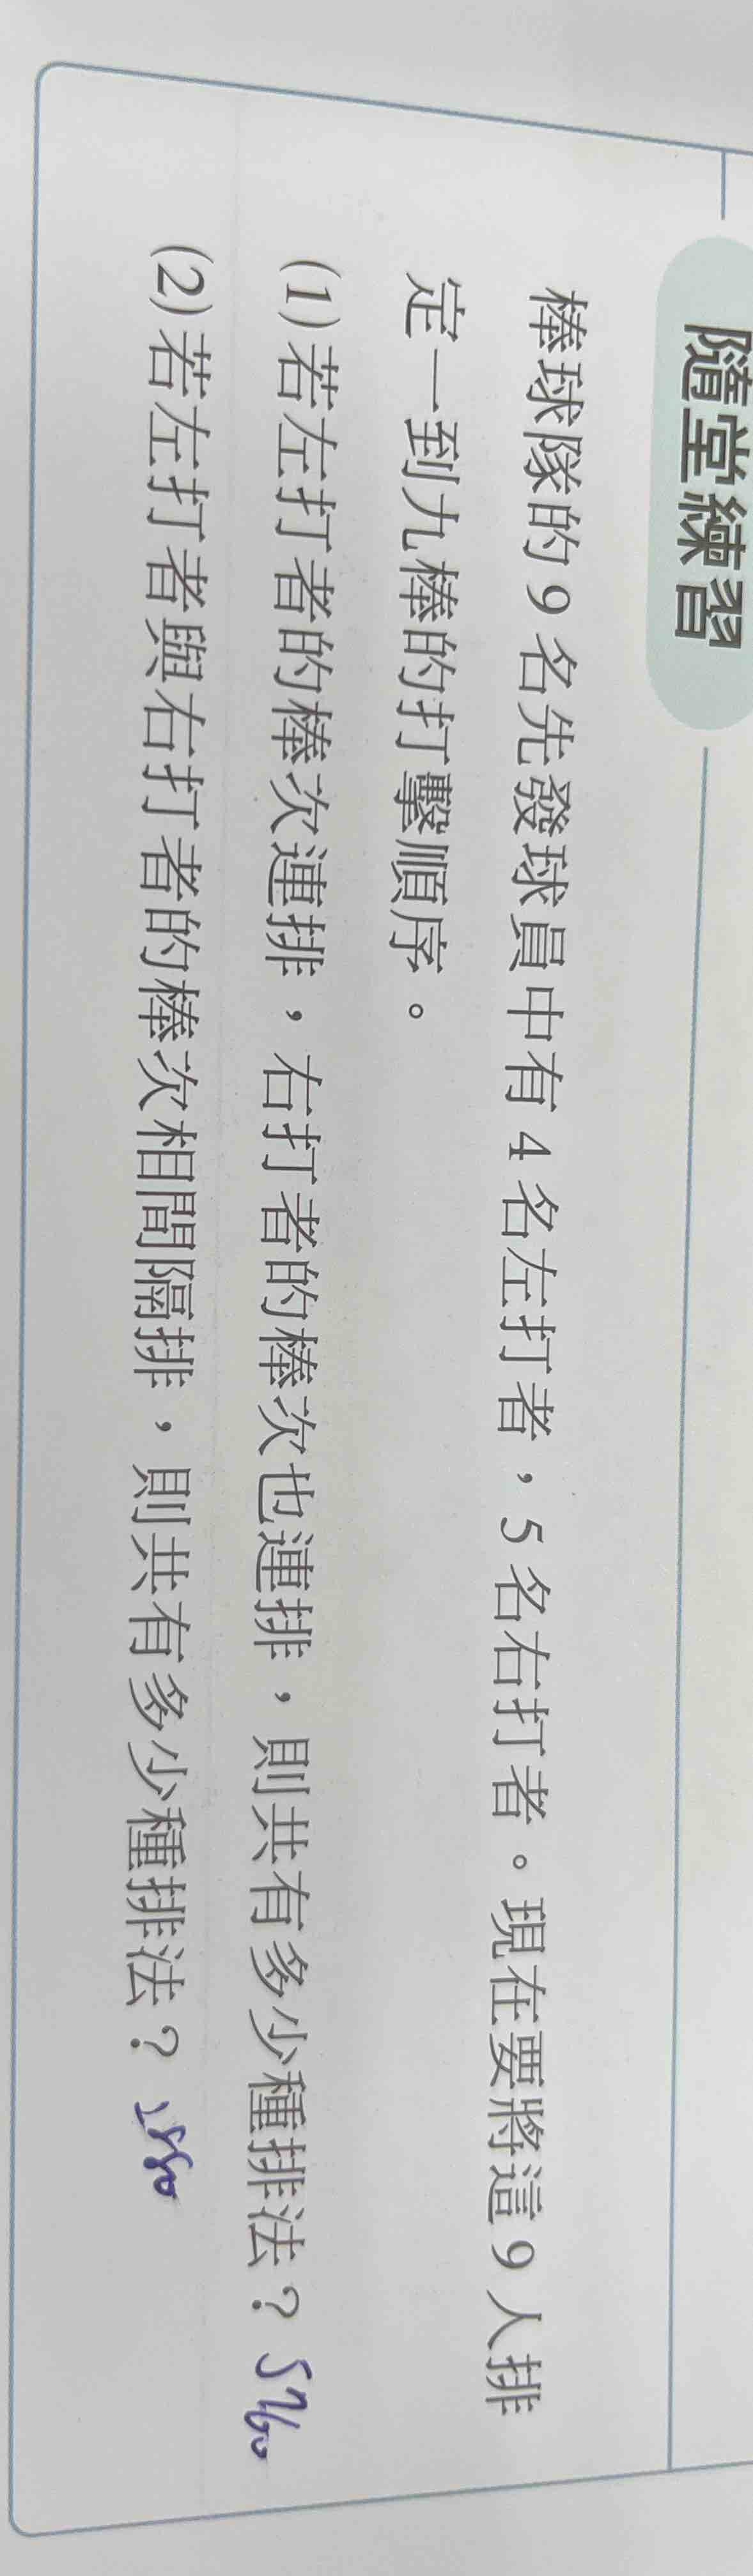 隨堂練習
棒球隊的9名先發球員中有4名左打者，5名右打者。現在要將這9人排
定一到九棒的打擊順序。
(1)若左打者的棒次連排，右打者的棒次也連排，則共有多少種排法？5760
(2)若左打者與右打者的棒次相間隔排，則共有多少種排法？2880